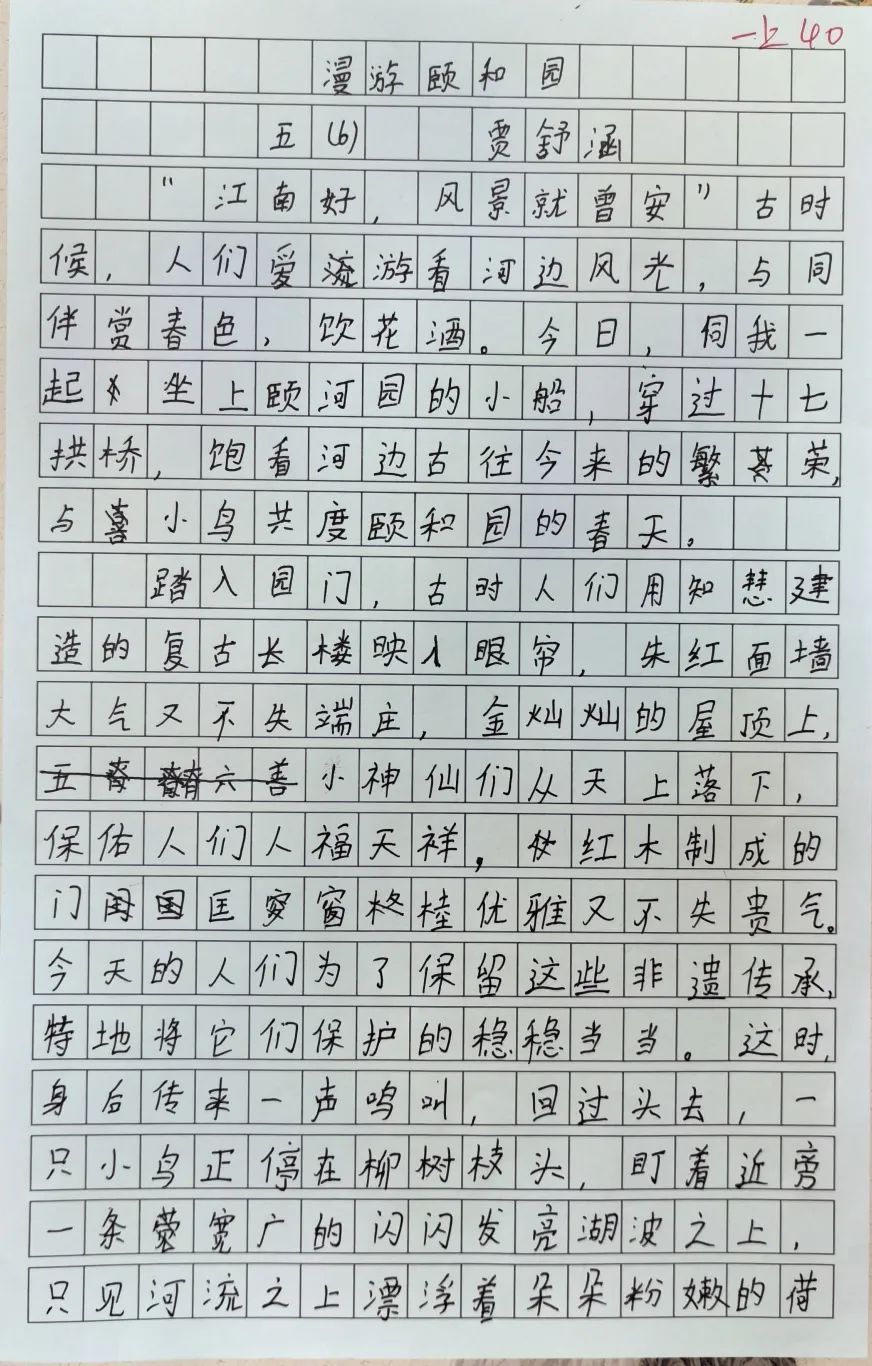 一上40
漫游颐和园
五(6) 贾舒涵
“江南好，风景就曾安”古时
候，人们爱游看河边风光，与同
伴赏春色，饮花酒。今日，伺我一
起坐上颐河园的小船，穿过十七
拱桥，饱看河边古往今来的繁荣，
与小鸟共度颐和园的春天。
踏入园门，古时人们用知慧建
造的复古长楼映入眼帘，朱红面墙
大气又不失端庄，金灿灿的屋顶上，
小神仙们从天上落下，
保佑人们人福天祥，红木制成的
门匡窗格桂优雅又不失贵气。
今天的人们为了保留这些非遗传承，
特地将它们保护的稳稳当当。这时，
身后传来一声鸣叫，回过头去，一
只小鸟正停在柳树枝头，盯着近旁
一条宽广的闪闪发亮湖波之上，
只见河流之上漂浮着朵朵粉嫩的荷